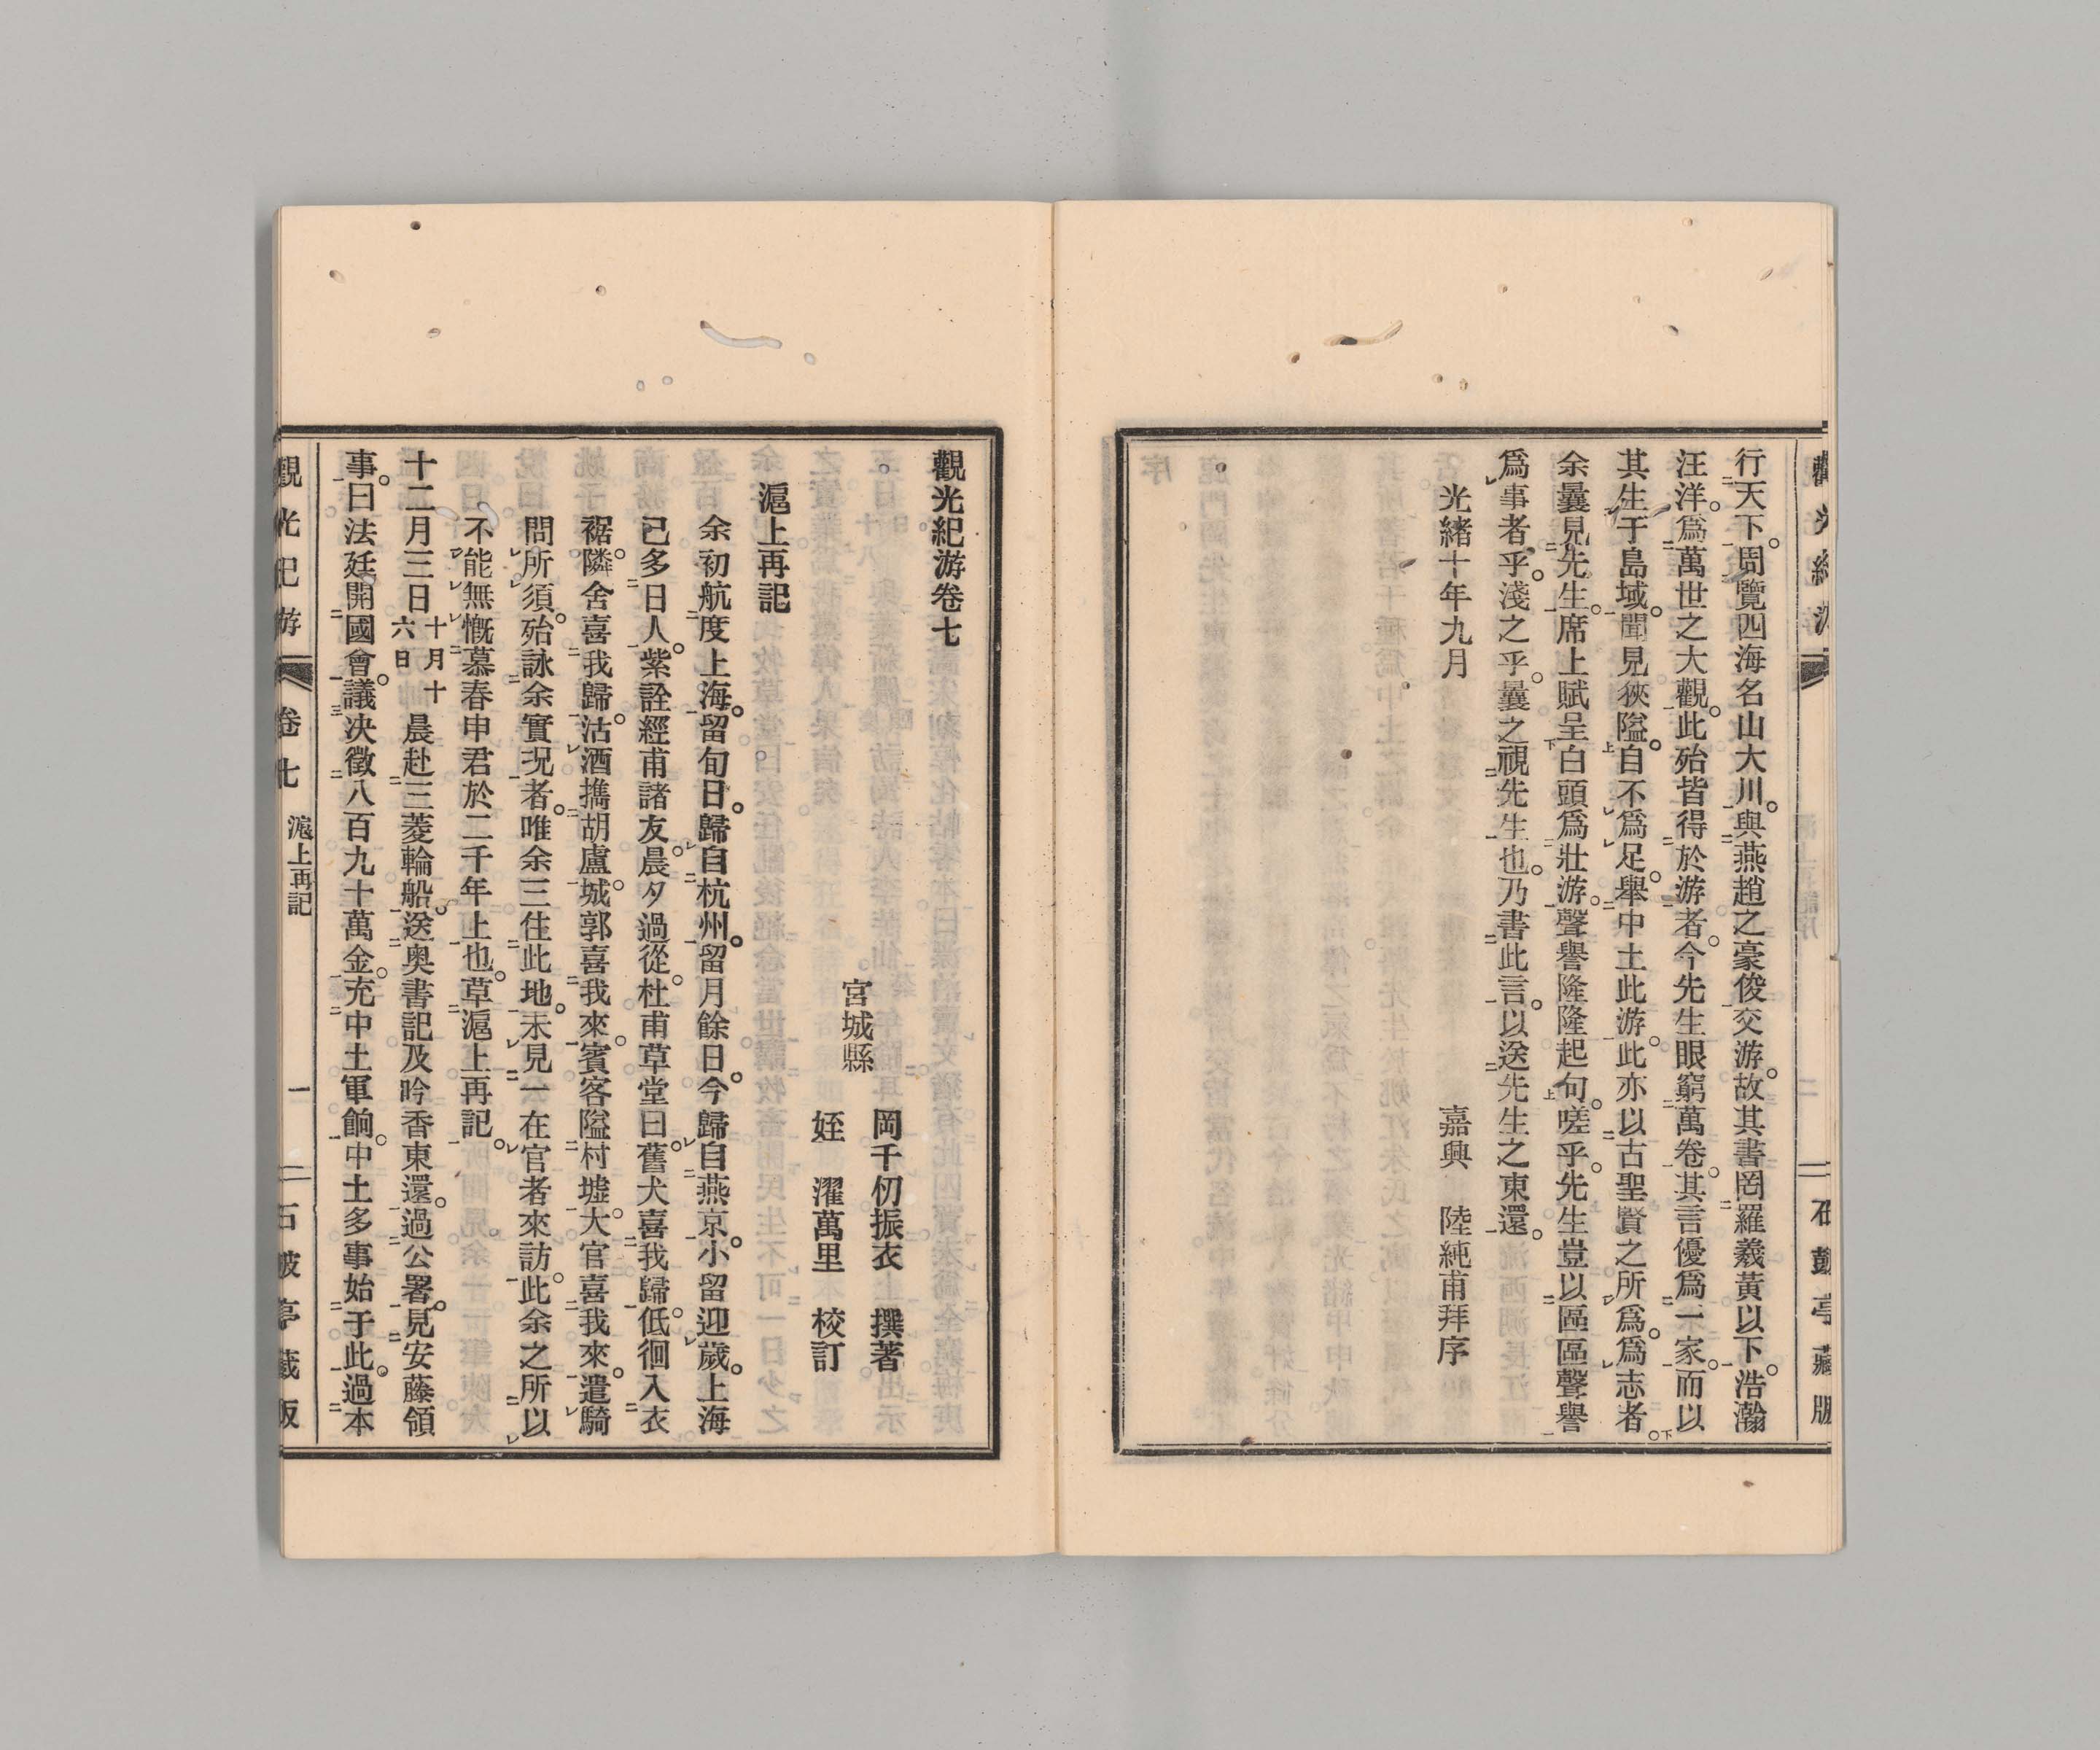 行天下。周覽四海名山大川。與燕趙之豪俊交游。故其書罔羅羲黃以下。浩瀚
汪洋。爲萬世之大觀。此殆皆得於游者。今先生眼窮萬卷。其言優爲一家。而以
其生于島域。聞見狹隘。自不爲足。舉中土此游。此亦以古聖賢之所爲。爲志者。
余曩見先生。席上賦呈白頭爲壯游。聲譽隆隆起句。嗟乎。先生豈以區區聲譽
爲事者乎。淺之乎。曩之視先生也。乃書此言。以送先生之東還。
光緒十年九月
嘉興　陸純甫拜序
觀光紀游卷七
宮城縣
岡千仞振衣　撰著
姪　濯萬里　校訂
滬上再記
余初航度上海。留旬日。歸自杭州。留月餘日。今歸自燕京。小留迎歲。上海
已多日人。紫詮經甫諸友。晨夕過從。杜甫草堂曰。舊犬喜我歸。低徊入衣
裾。隣舍喜我歸。沽酒擕胡盧。城郭喜我來。賓客隘村墟。大官喜我來。遣騎
問所須。殆詠余實況者。唯余三住此地。未見一在官者來訪。此余之所以
不能無慨慕春申君於二千年上也。草滬上再記。
十二月三日十月十六日晨赴三菱輪船。送奧書記及吟香東還。過公署。見安藤領
事。曰法廷開國會。議決徵八百九十萬金。充中土軍餉。中土多事始于此。過本
觀光紀游　卷七　滬上再記　一　石鼓亭藏版
石鼓亭藏版